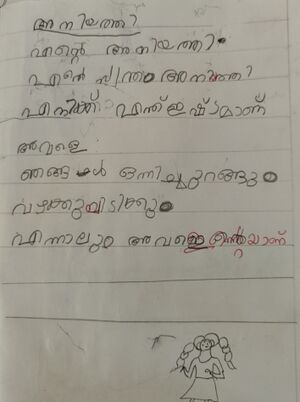 അനിയത്തി
എന്റെ അനിയത്തി
എന്റെ സ്വന്തം അനിയത്തി
എനിക്ക് എന്ത് ഇഷ്ടമാണ്
അവളെ
ഞങ്ങൾ ഒന്നിച്ചുറങ്ങും
വഴക്കുപിടിക്കും
എന്നാലും അവളെന്റെയാണ്